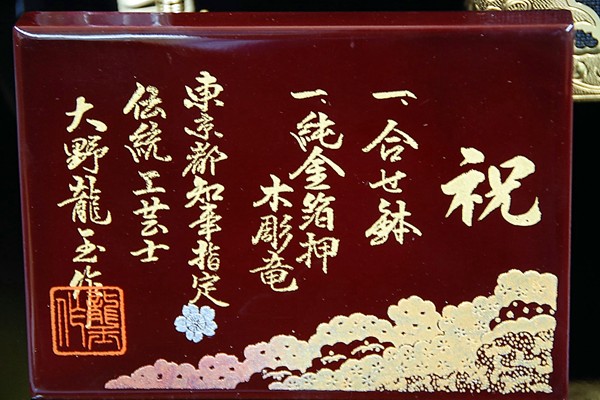 祝
一、合せ鉢
一、純金箔押
木彫竜
東京都知事指定
伝統工芸士
大野龍玉作
龍玉作